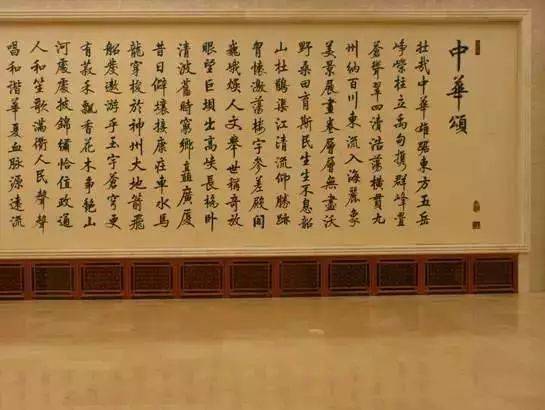 中華頌
壯我中華雄踞東方五岳
崢嶸柱立禹甸攜群峰疊
蒼聳翠四瀆浩蕩橫貫九
州納百川東流入海麗象
美景展畫卷層層無盡沃
野桑田育斯民生生不息韶
山杜鵑渠江清流仰勝跡
胷懷激蕩樓宇參差殿閣
巍峨煥人文舉世稱奇放
眼望巨壩出高峽長橋卧
清波舊時窮鄉矗廣厦
昔日僻壤接康莊車水馬
龍穿梭於神州大地箭飛
船度遨游乎玉宇蒼穹更
有菽禾飄香花木爭艷山
河處處披錦繡恰值政通
人和笙歌滿衢人民聲聲
唱和諧華夏血脈源遠流